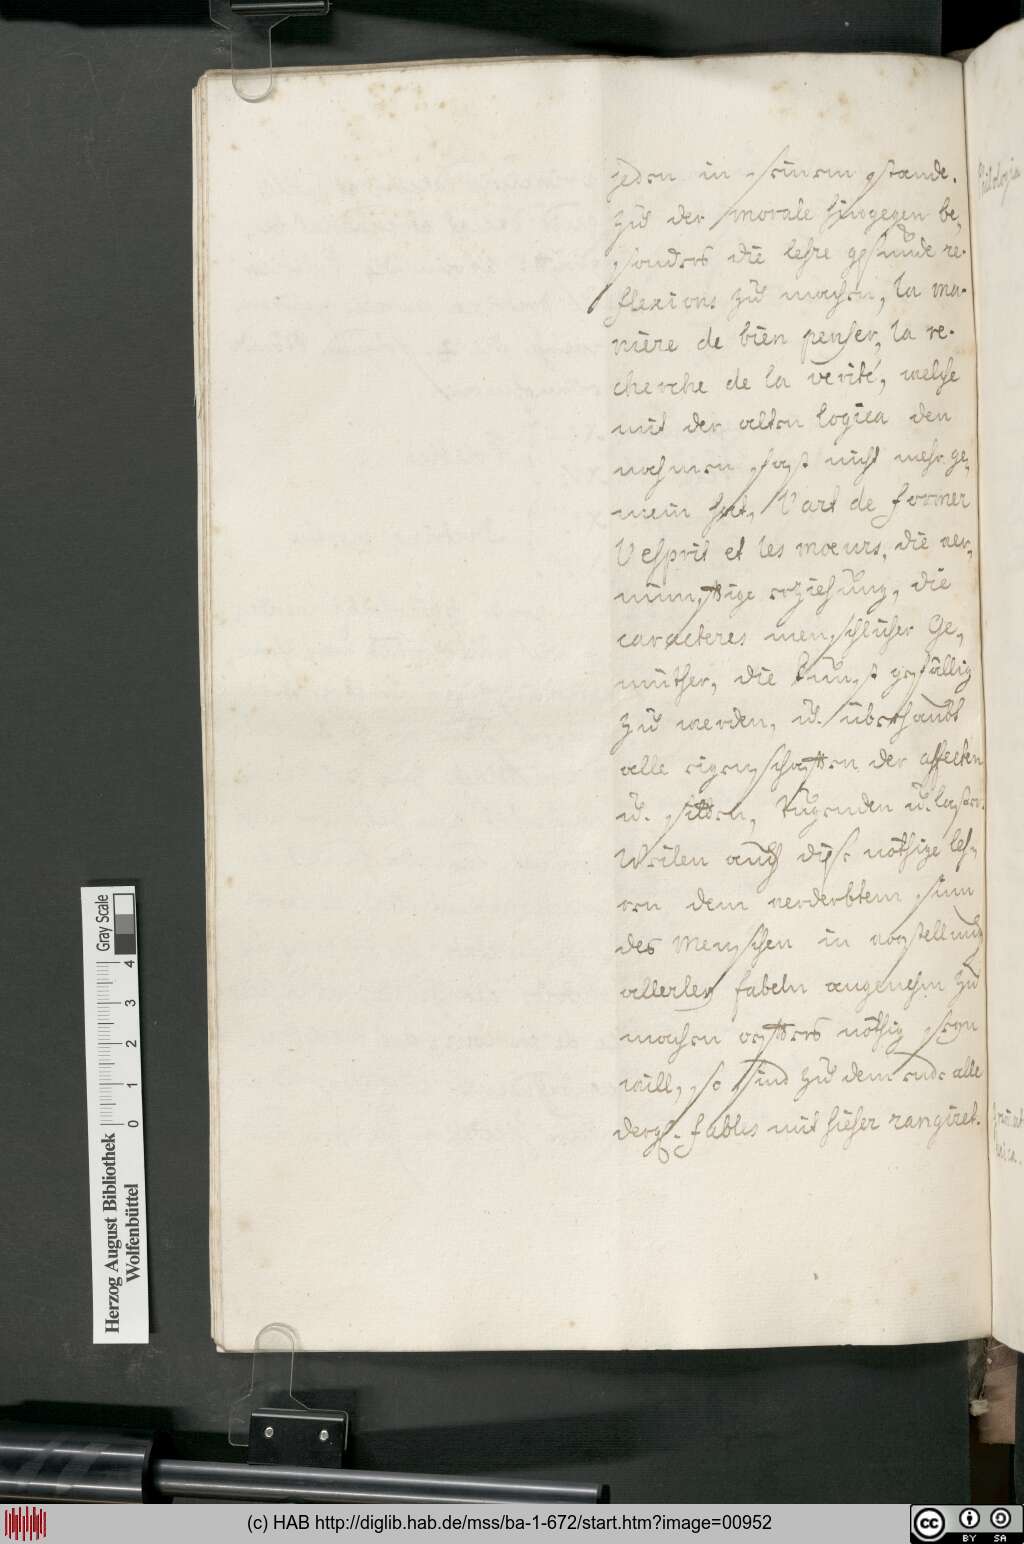 jeden in seinem stande.
Zu der morale hingegen be,
sonders die lehre gesunde re-
flexions zu machen, la ma-
niere de bien penser, la re-
cherche de la verité, welche
mit der alten logica den
nahmen fast nicht mehr ge,
mein hat, l'art de former
l'esprit et les moeurs, die ver,
nünfftige erziehung, die
caracteres menschlicher Ge,
müther, die kunst gefällig
zu werden, u. überhaubt
alle eigenschafften der affecten
u. sitten, tugenden u. laster.
Weilen auch diese nöthige leh,
ren dem verderbtem sinn
des Menschen in vorstellung
allerley fabeln angenehm zu
machen öffters nöthig seyn
will, so sind zu dem ende alle
dergl. fables mit hieher rangiret.
Philologia
Herzog August Bibliothek
Wolfenbüttel
0 1 2 3 4
Gray Scale
(c) HAB http://diglib.hab.de/mss/ba-1-672/start.htm?image=00952
cc BY SA